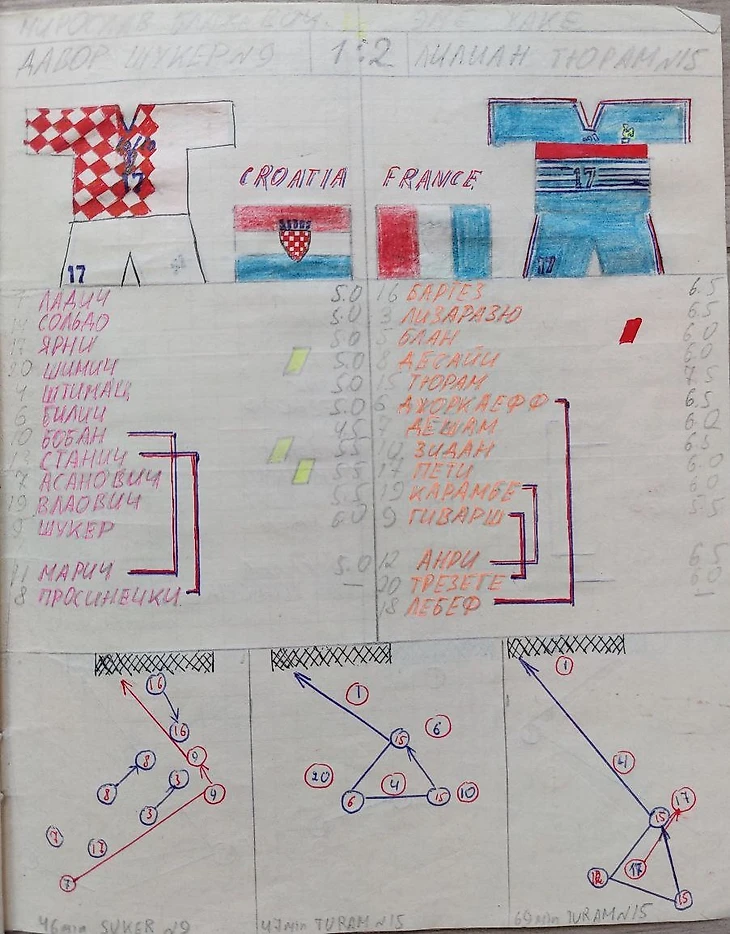 МИРОСЛАВ БЛАЖЕВИЧ. ЭМЕ ЖАКЕ
ДАВОР ШУКЕР N9 1:2 ЛИЛИАН ТЮРАМ N15
CROATIA FRANCE
17 17
17
1 ЛАДИЧ 5.0 16 БАРТЕЗ 6.5
14 СОЛЬДО 5.0 3 ЛИЗАРАЗЮ 6.5
17 ЯРНИ 5.0 5 БЛАН 6.0
20 ШИМИЧ 5.0 8 ДЕСАЙИ 6.0
4 ШТИМАЦ 5.0 15 ТЮРАМ 7.5
6 БИЛИЧ 5.0 6 ДЖОРКАЕФФ 6.5
10 БОБАН 4.5 7 ДЕШАМ 6.0
13 СТАНИЧ 5.5 10 ЗИДАН 6.5
7 АСАНОВИЧ 5.5 17 ПЕТИ 6.0
19 ВЛАОВИЧ 5.5 19 КАРАМБЕ 6.0
9 ШУКЕР 6.0 9 ГИВАРШ 5.5
11 МАРИЧ 5.0 12 АНРИ 6.5
8 ПРОСИНЕЧКИ — 20 ТРЕЗЕГЕ 6.0
18 ЛЕБЕФ —
16 1 1
16 15 6
8 9 20 4 4
8 3 9 6 15 10 17
3 15
7 17 12 17
7 15
46min SUKER N9 47min TURAM N15 69min TURAM N15